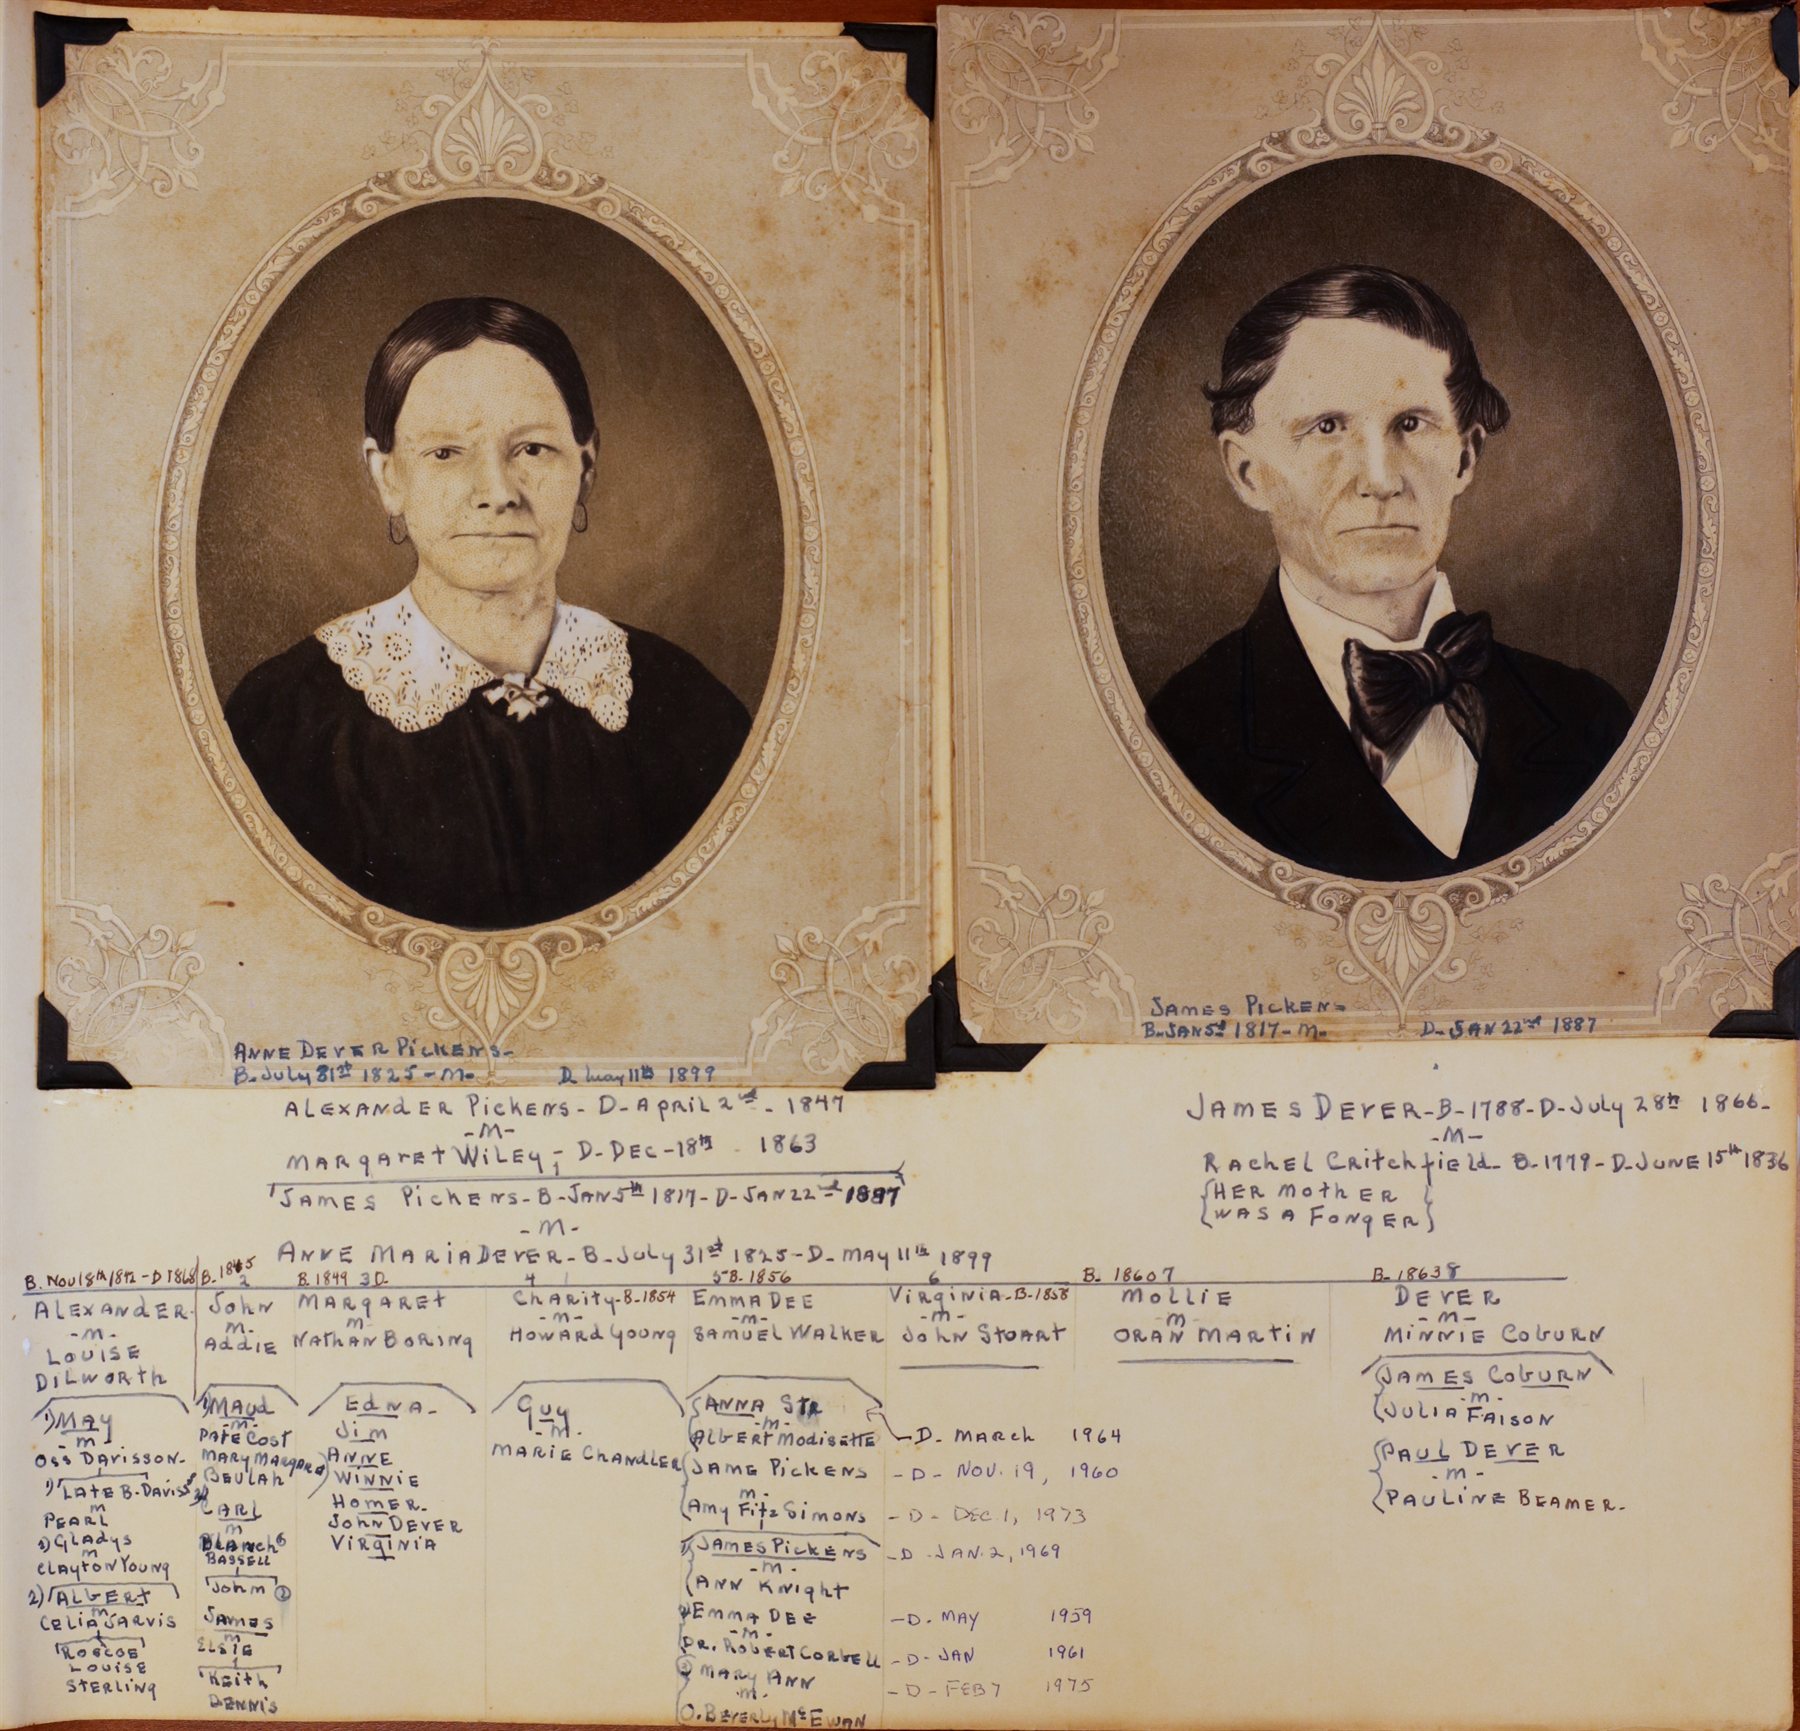 ANNE DEVER PICKENS-
B- July 31st 1825 - M-
D May 11th 1899
JAMES PICKENS
B- JAN 5th 1817 - M-
D- JAN 22nd 1887
ALEXANDER PICKENS - D - APRIL 2nd - 1847
- M -
MARGARET WILEY; D - DEC - 18th 1863
JAMES PICKENS - B - JAN 5th 1817 - D - JAN 22nd 1887
- M -
ANNE MARIA DEVER - B - July 31st 1825 - D - MAY 11th 1899
JAMES DEVER - B - 1788 - D - July 28th 1866 -
- M -
RACHEL CRITCHFIELD - B - 1779 - D - JUNE 15th 1836
{HER MOTHER}
{WAS A FONGER}
B. NOV 18th 1842 - D 1868
ALEXANDER -
- M -
LOUISE
DILWORTH
1) MAY
- M -
OSS DAVISSON -
1) LATE B. DAVISS
M
PEARL
2) GLADYS
M
CLAYTON YOUNG
2) ALBERT
M
CELIA JARVIS
ROSCOE
LOUISE
STERLING
B - 1845
2
JOHN
M -
ADDIE
1) MAUD
- M -
PATE COST
MARY MARGARET
BEULAH
2) CARL
M
BLANCHE
BASSELL
JOHN 2
JAMES
M
ELSIE
KEITH
DENNIS
B. 1849 3 D -
MARGARET
- M -
NATHAN BORING
EDNA -
JIM
ANNE
WINNIE
HOMER -
JOHN DEVER
VIRGINIA
4
CHARITY - B - 1854
- M -
HOWARD YOUNG
GUY
- M -
MARIE CHANDLER
5 B - 1856
EMMA DEE
- M -
SAMUEL WALKER
ANNA STR
- M -
ALBERT MODISETTE - D - MARCH 1964
JAME PICKENS - D - NOV. 19, 1960
M -
AMY FITZ SIMONS - D - DEC 1, 1973
1) JAMES PICKENS - D - JAN. 2, 1969
- M -
ANN KNIGHT
2) EMMA DEE - D - MAY 1959
- M -
DR. ROBERT CORBELL - D - JAN 1961
3 MARY ANN - D - FEB 7 1975
- M -
O. BEVERLY McEWAN
6
VIRGINIA - B - 1858
- M -
JOHN STUART
B - 1860 7
MOLLIE
- M -
ORAN MARTIN
B - 1863 8
DEVER
- M -
MINNIE COBURN
JAMES COBURN
- M -
JULIA FAISON
PAUL DEVER
- M -
PAULINE BEAMER -